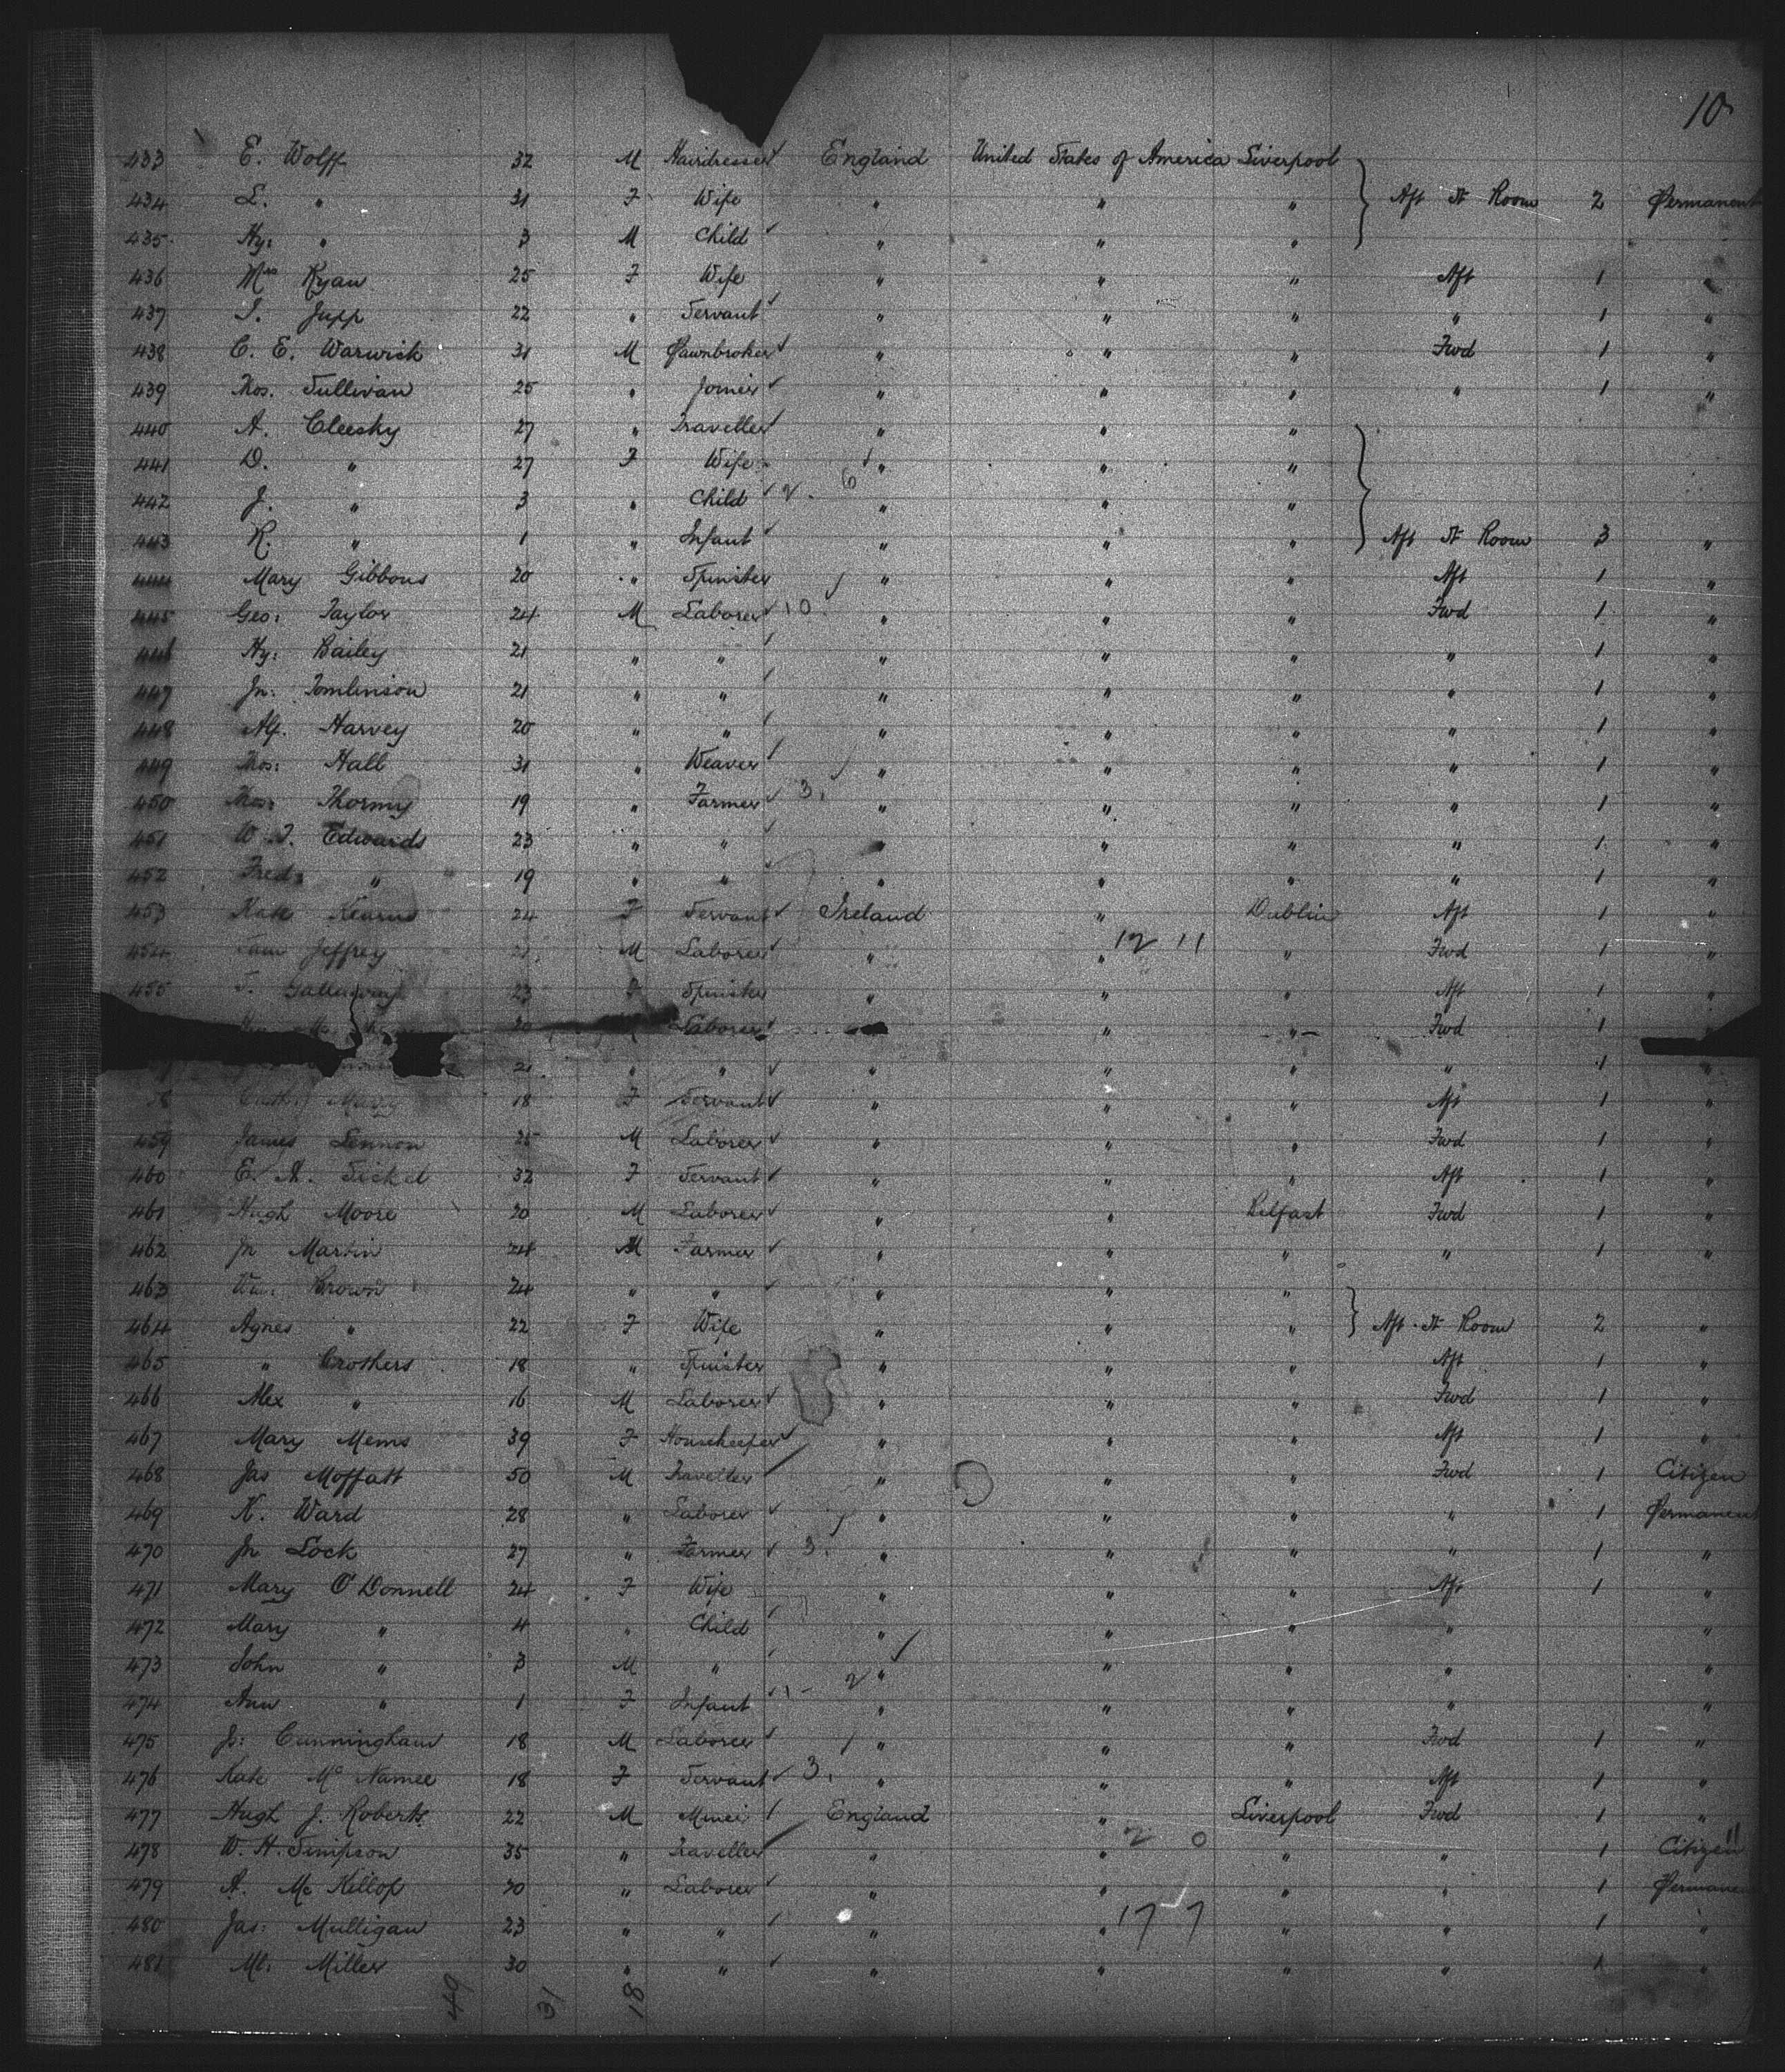 10
433 E. Wolff 32 M Hairdresser England United States of America Liverpool
434 L. " 31 F Wife " " " Aft St Room 2 Permanent
435 Hy: " 3 M Child " " "
436 Mrs Ryan 25 F Wife " " " Aft 1 "
437 S. Jupp 22 " Servant " " " " 1 "
438 C. E. Warwick 31 M Pawnbroker " " " Fwd 1 "
439 Thos. Sullivan 25 " Joiner " " " " 1 "
440 A. Cleesky 27 " Traveller " " "
441 D. " 27 F Wife " " "
442 J. " 3 " Child 2. 6 " " "
443 R. " 1 " Infant " " " Aft St Room 3 "
444 Mary Gibbons 20 " Spinster " " " Aft 1 "
445 Geo: Taylor 24 M Laborer 10. " " " Fwd 1 "
446 Hy: Bailey 21 " " " " " " 1 "
447 Jn: Tomlinson 21 " " " " " " 1 "
448 Alf. Harvey 20 " " " " " " 1 "
449 Thos: Hall 31 " Weaver " " " " 1 "
450 Thos: 19 " Farmer 3. " " " " 1 "
451 W. J. Edwards 23 " " " " " " 1 "
452 Fred: " 19 " " " " " " 1 "
453 Kate Kearns 24 F Servant Ireland " Dublin Aft 1 "
454 Jeffrey 21 M Laborer " " 12 11 " Fwd 1 "
455 23 F Spinster " " " Aft 1 "
20 Laborer " " Fwd 1 "
21 " " " " " " 1 "
8 Cath: 18 F Servant " " " Aft 1 "
459 James Lennon 25 M Laborer " " " Fwd 1 "
460 E. A. Sickel 32 F Servant " " " Aft 1 "
461 Hugh Moore 20 M Laborer " " Belfast Fwd 1 "
462 Jn Martin 24 M Farmer " " " " 1 "
463 Wm: Brown 24 " " " " "
464 Agnes " 22 F Wife " " " Aft St Room 2 "
465 " Crothers 18 " Spinster " " " Aft 1 "
466 Alex " 16 M Laborer " " " Fwd 1 "
467 Mary Mems 39 F Housekeeper " " " Aft 1 "
468 Jas Moffatt 50 M Traveller " " Fwd 1 Citizen
469 K. Ward 28 " Laborer " " " " 1 Permanent
470 Jn Lock 27 " Farmer 3. " " " " 1 "
471 Mary O'Donnell 24 F Wife " " " Aft 1 "
472 Mary " 4 " Child " " " " "
473 John " 3 M " " " " " "
474 Ann " 1 F Infant 1 - 2 " " " " "
475 Js: Cunningham 18 M Laborer " " " Fwd 1 "
476 Kate Mc Namee 18 F Servant 3. " " " Aft 1 "
477 Hugh J. Roberts 22 M Miner England " Liverpool Fwd 1 "
478 W. H. Simpson 35 " Traveller " " 2 0 " " 1 Citizen
479 A. Mc Killop 20 " Laborer " " " " 1 Permanent
480 Jas: Mulligan 23 " " " " 17 7 " " 1 "
481 Ml: Miller 30 " " " " " " 1 "
49 31 18